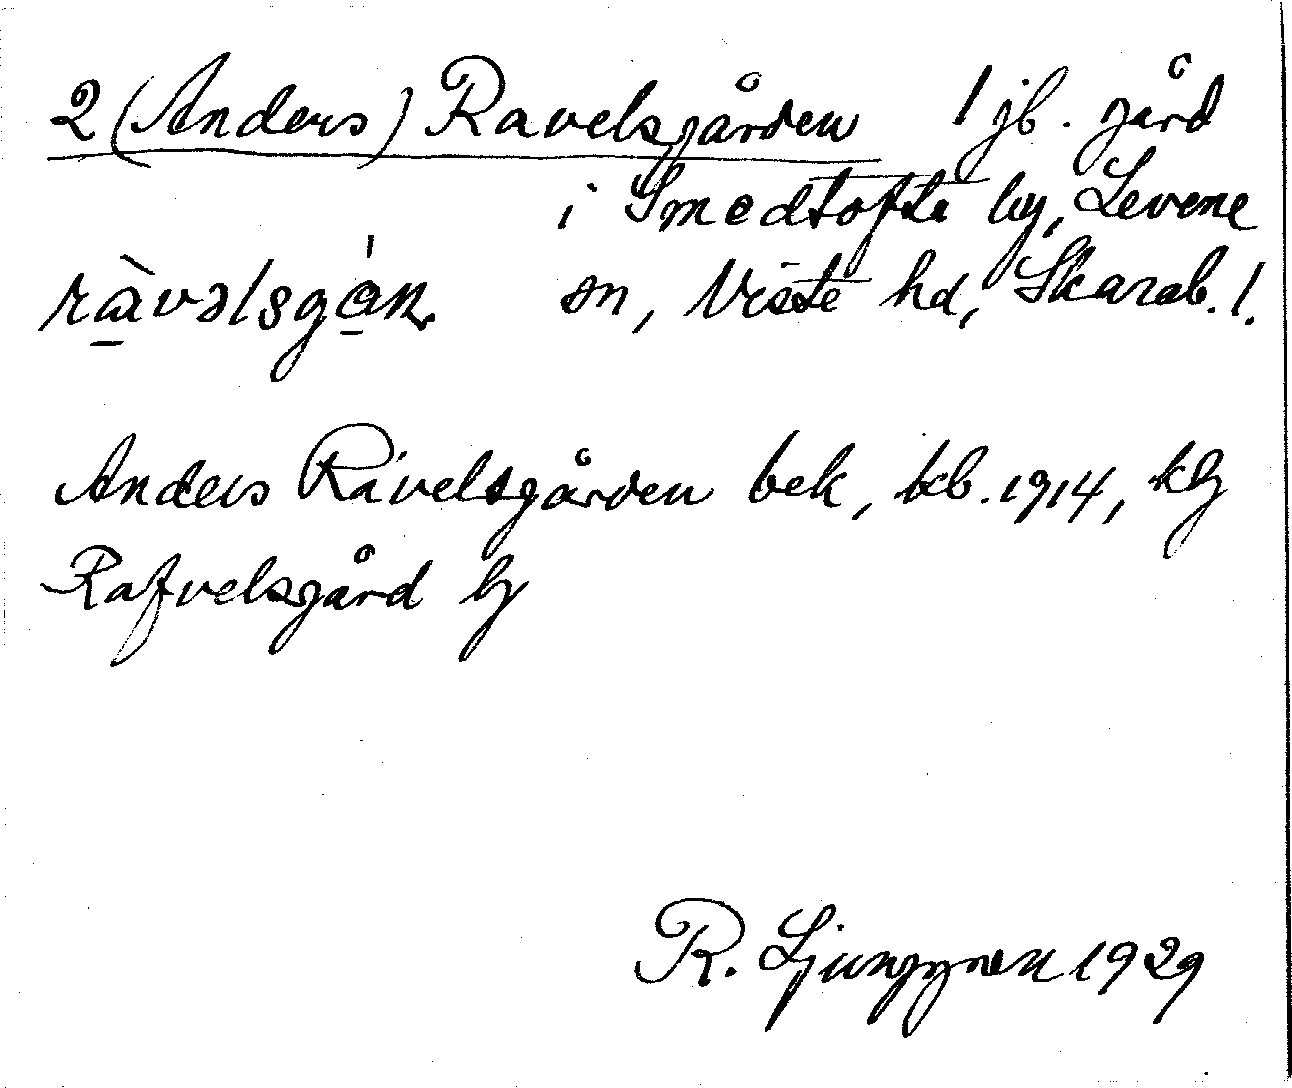 2 (Anders) Ravelsgården 1 jb. gård
i Smedtofta by, Levene
ràvəlsgán. sn, Viste hd, Skarab. l.
Anders Ravelsgården bek, kb. 1914,
Rafvelsgård
R. Ljunggren 1929